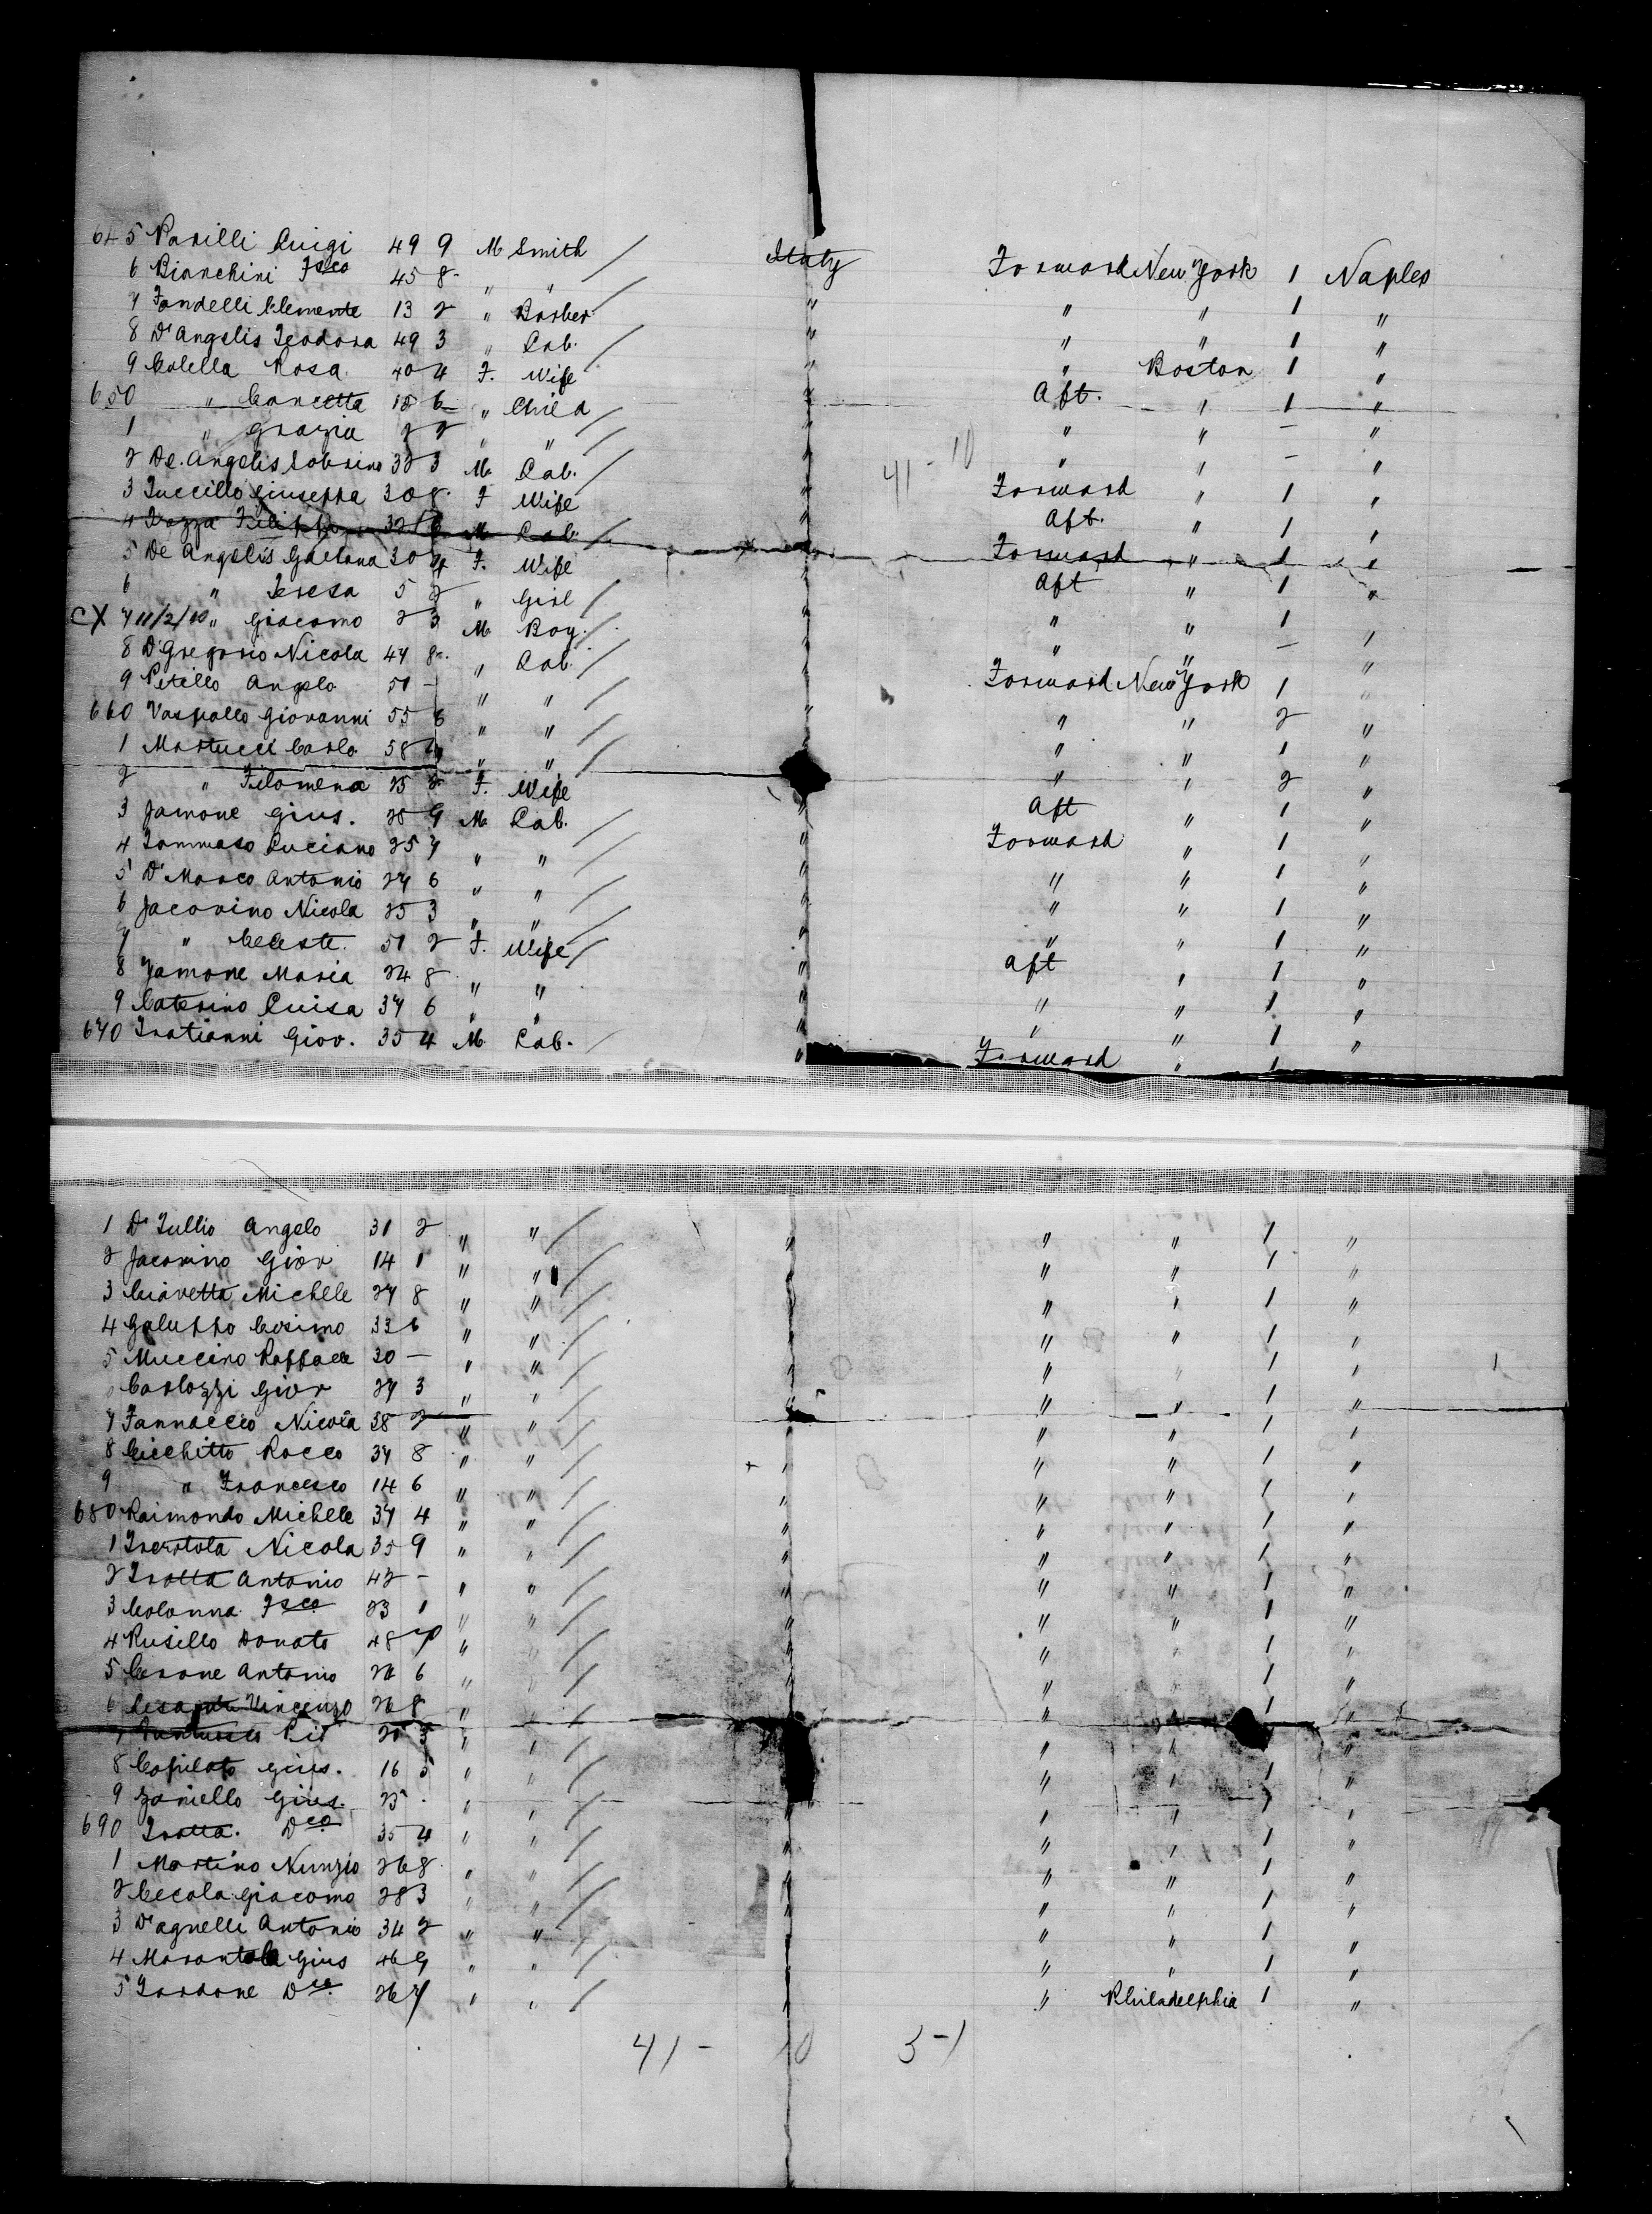 645 Parilli Luigi 49 9 M Smith / Italy Forward New York 1 Naples
6 Bianchini Fsco 45 8 " " / " " " 1 "
7 Fandelli Clemente 13 2 " Barber " " " 1 "
8 D'Angelis Teodora 49 3 " Lab. / " " Boston 1 "
9 Colella Rosa 40 4 F. Wife " Aft. " 1 "
650 " Concetta 18 6 " Child / " " " — "
1 " Grazia 2 2 " " / " " " — "
2 De Angelis Sobrino 32 3 M Lab. / " Forward " 1 "
41 - 10
3 Tuccillo Giuseppa 30 8 F Wife " Aft. " 1 "
4 Filippo 32 6 M Lab. / " Forward " 1 "
5 De Angelis Gaetana 30 4 F. Wife " Aft " 1 "
6 " Teresa 5 2 " Girl / " " " 1 "
CX 7 11/2/10 " Giacomo 2 3 M Boy. / " " " — "
8 D'Gregorio Nicola 47 8 " Lab / " Forward New York 1 "
9 Petillo Angelo 51 - " " / " " " 2 "
660 Vaspallo Giovanni 55 6 " " / " " " 1 "
1 Martucci Carlo 58 4 " " / " " " 2 "
2 " Filomena 25 2 F. Wife " Aft " 1 "
3 Jamone Gius. 28 9 M Lab. / " Forward " 1 "
4 Tommaso Luciano 25 7 " " / " " " 1 "
5 D'Marco Antonio 27 6 " " / " " " 1 "
6 Jacovino Nicola 25 3 " " / " " " 1 "
7 " Celeste 51 2 F. Wife / " Aft " 1 "
8 Jamone Maria 24 8 " " " " " 1 "
9 Caterino Luisa 37 6 " " " " " 1 "
670 Tratianni Giov. 35 4 M Lab. / " Forward " 1
1 D'Tullio Angelo 31 2 " " / " " " 1 "
2 Jacovino Giov 14 1 " " / " " 1 "
3 Ciavetta Michele 27 8 " " / " " 1 "
4 Galuppo Cosimo 33 6 " " / " " 1 "
5 Muccino Raffaele 30 — " " / " " " 1 "
Carlozzi Giov 27 3 " " / " " " 1 "
7 Fannaccio Nicola 38 2 " " / " " 1 "
8 Cicchitto Rocco 37 8 " " / " " " 1 "
9 " Francesco 14 6 " " / " " " 1 "
680 Raimondo Michele 37 4 " " / " " " 1 "
1 Nicola 35 9 " " / " " " 1 "
2 Trotta Antonio 42 - " " / " " " 1 "
3 Colonna Fsco 23 1 " " / " " " 1 "
4 Rusillo Donato 48 " " / " " " 1 "
5 Cerone Antonio 26 " " / " " " 1 "
6 Vincenzo 26 8 " " / " " " 1 "
7 " " / " " "
8 Copilato Gius. 16 5 " " / " " 1 "
9 Zaniello Gius. 25 - " " / " " 1 "
690 Trotta. Dco 35 4 " " / " " " 1 "
1 Martino Nunzio 26 8 " " / " " " 1 "
2 Cecola Giacomo 28 3 " " / " " " 1 "
3 D'agnelli Antonio 34 2 " " / " " " 1 "
4 Gius 46 9 " " / " " " 1 "
5 Dco 26 7 " " / " " Philadelphia 1 "
41 - 10 3-1